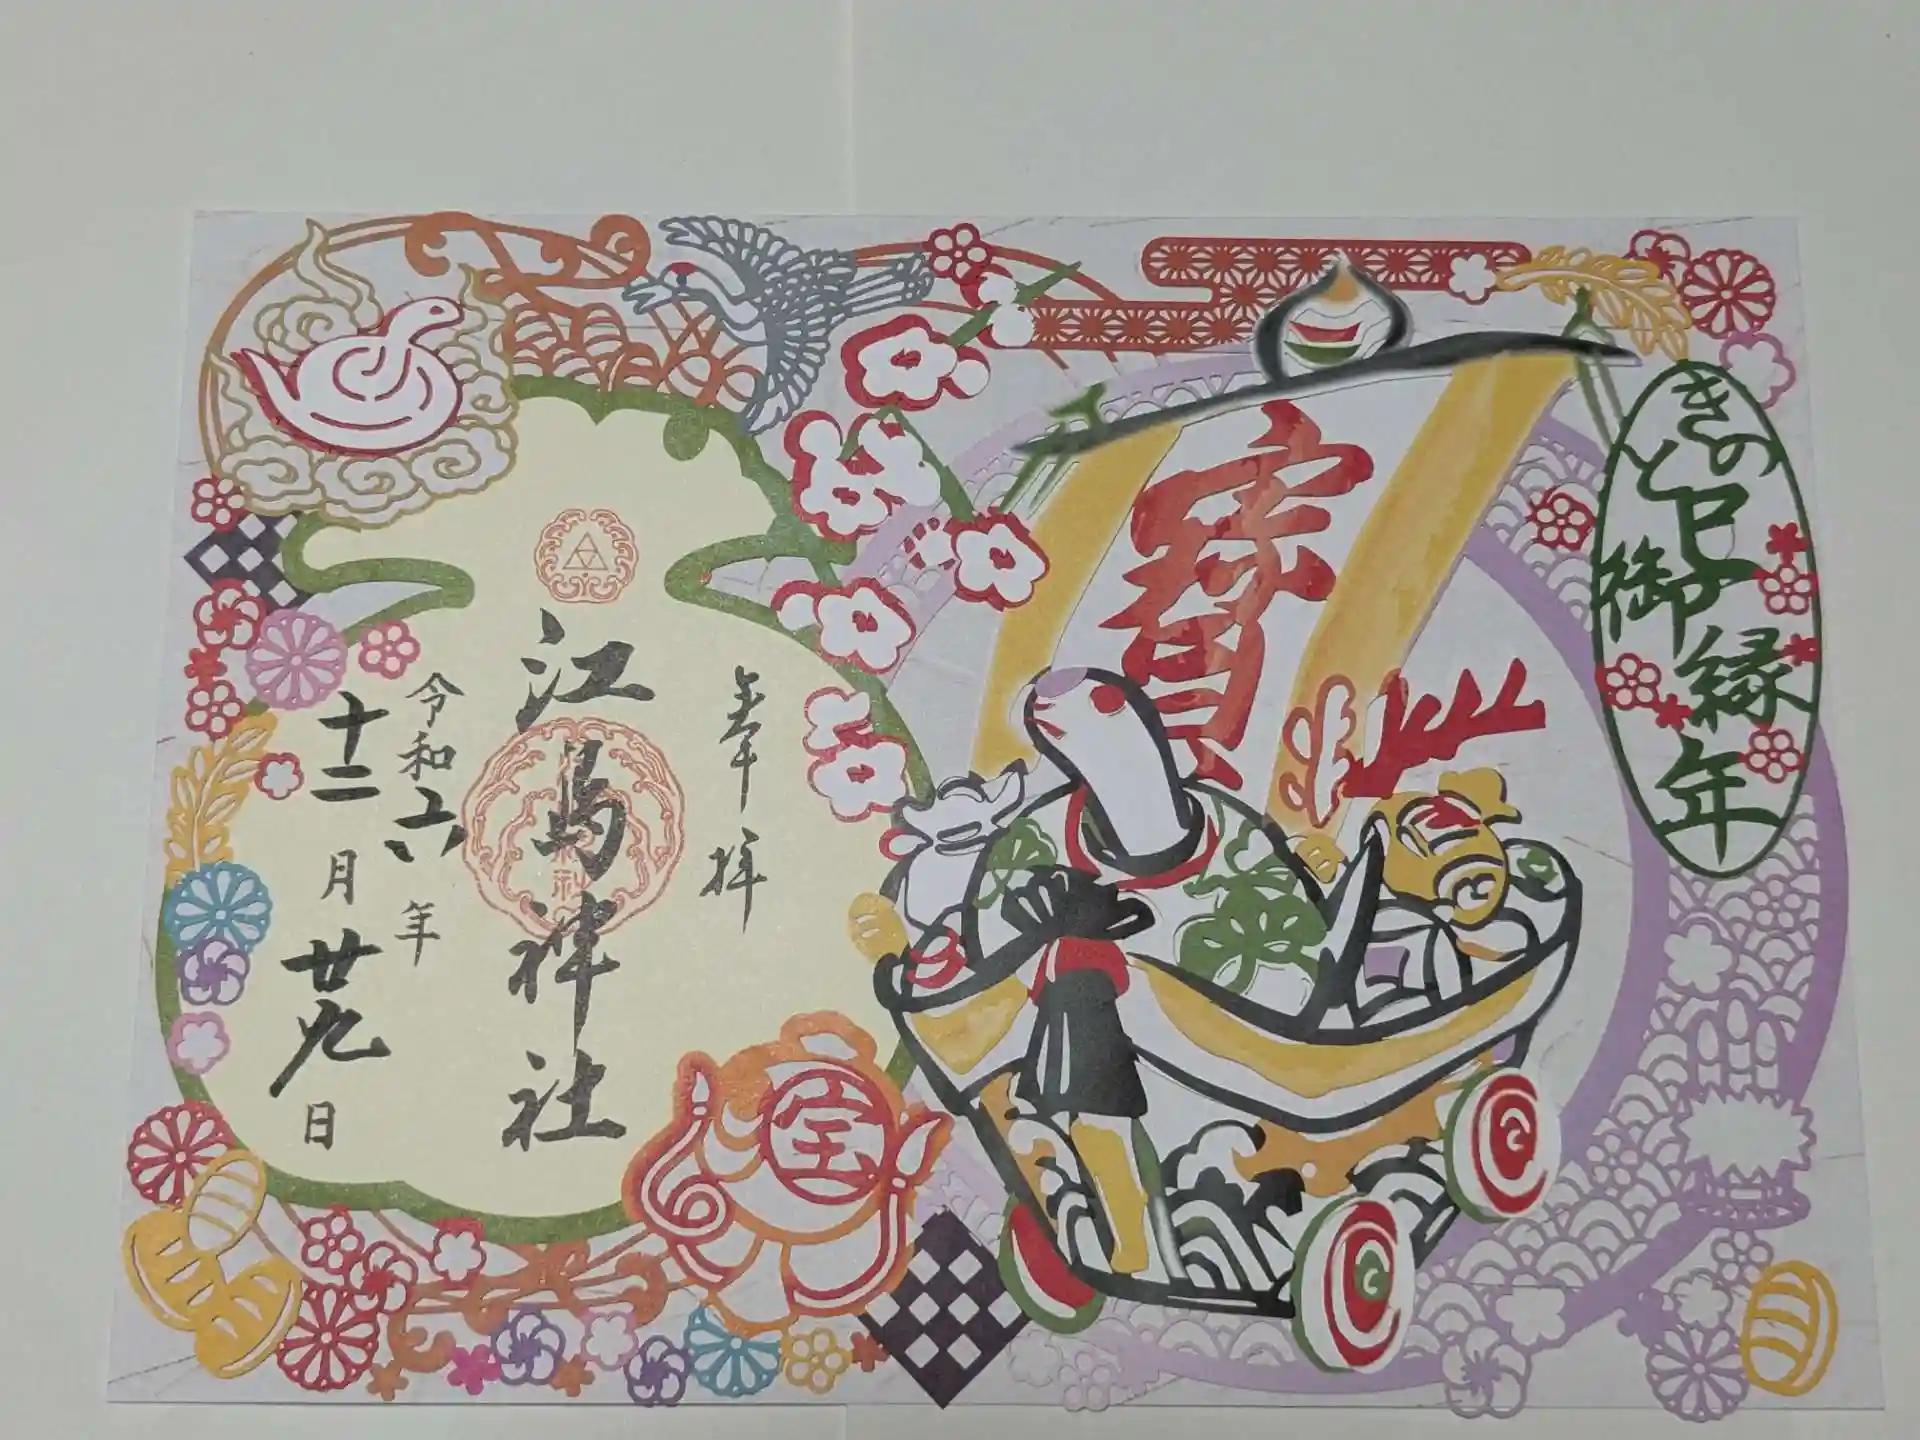 きのと巳
御縁年
寳
奉拝
江島神社
令和六年
十二月廿九日
宝